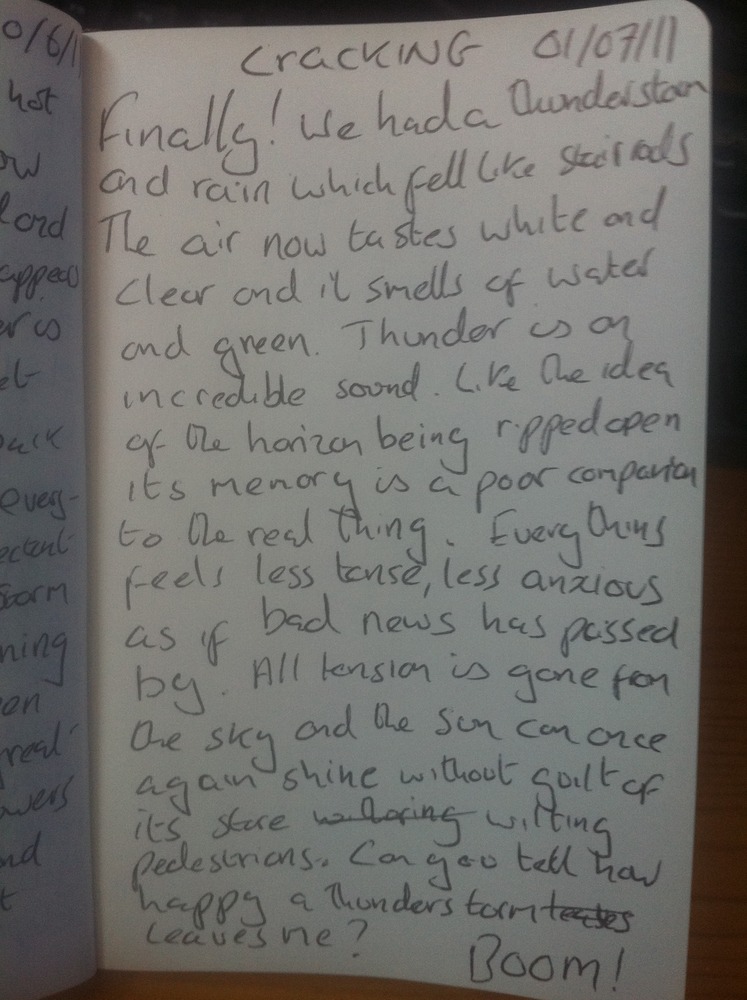 0/6/11
hot
ow
lord
appears
er is
et
back
every-
ectent
storm
ning
en
great
owers
nd
t
CRACKING 01/07/11
Finally! We had a thunderstorm
and rain which fell like stair rods
The air now tastes white and
clear and it smells of water
and green. Thunder is an
incredible sound. Like the idea
of the horizon being ripped open
its memory is a poor companion
to the real thing. Everything
feels less tense, less anxious
as if bad news has passed
by. All tension is gone from
the sky and the sun can once
again shine without guilt of
its stare wilting
pedestrians. Can you tell how
happy a thunderstorm
leaves me?
BOOM!